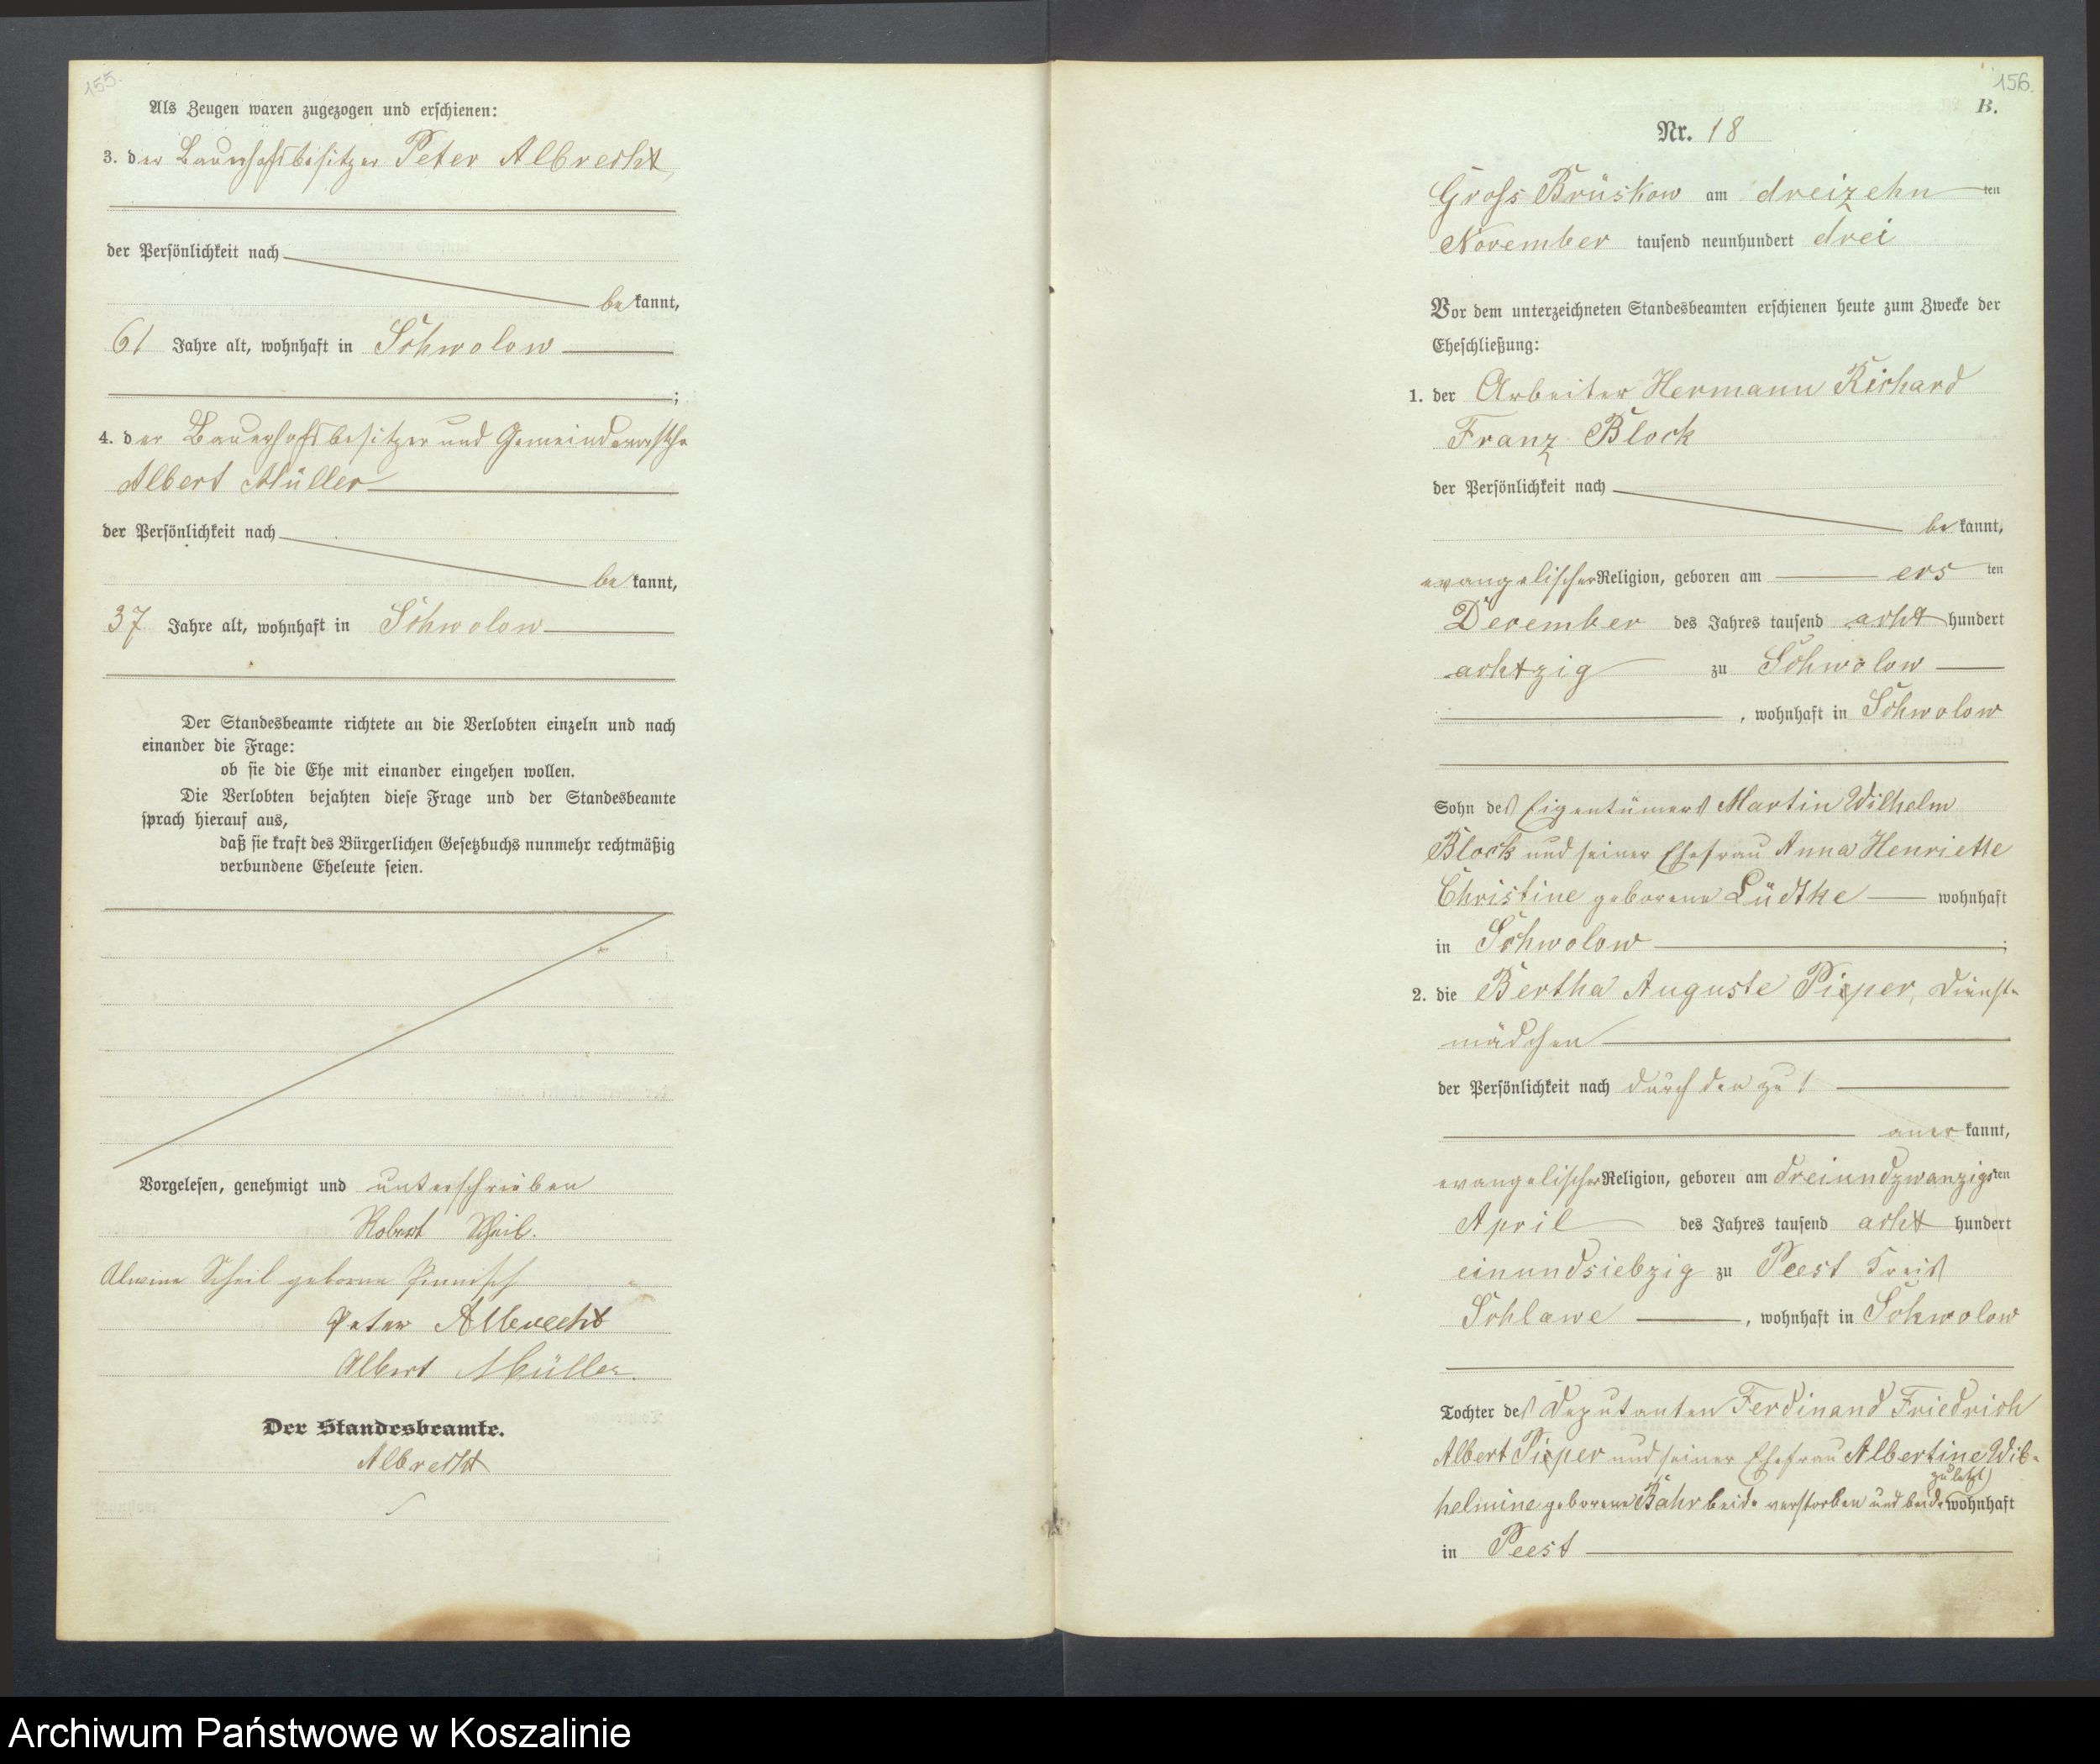 155.
Als Zeugen waren zugezogen und erschienen:
3. der Bauerhofsbesitzer Peter Albrecht,
der Persönlichkeit nach
bekannt,
61 Jahre alt, wohnhaft in Schwolow
;
4. der Bauerhofsbesitzer und Gemeindevorsteher
Albert Müller
der Persönlichkeit nach
bekannt,
37 Jahre alt, wohnhaft in Schwolow
Der Standesbeamte richtete an die Verlobten einzeln und nach
einander die Frage:
ob sie die Ehe mit einander eingehen wollen.
Die Verlobten bejahten diese Frage und der Standesbeamte
sprach hierauf aus,
daß sie kraft des Bürgerlichen Gesetzbuchs nunmehr rechtmäßig
verbundene Eheleute seien.
Vorgelesen, genehmigt und unterschrieben
Robert Scheil.
Alwine Scheil geborne
Peter Albrecht
Albert Müller.
Der Standesbeamte.
Albrecht
156.
B.
Nr. 18
Gross Brüskow am dreizehnten
November tausend neunhundert drei
Vor dem unterzeichneten Standesbeamten erschienen heute zum Zwecke der
Eheschließung:
1. der Arbeiter Hermann Richard
Franz Block
der Persönlichkeit nach
bekannt,
evangelischer Religion, geboren am ersten
December des Jahres tausend acht hundert
achtzig zu Schwolow
, wohnhaft in Schwolow
Sohn des Eigentümers Martin Wilhelm
Block und seiner Ehefrau Anna Henriette
Christine geborene Lüdtke wohnhaft
in Schwolow ;
2. die Bertha Auguste Pieper, Dienst-
mädchen
der Persönlichkeit nach durch den zu 1
anerkannt,
evangelischer Religion, geboren am dreiundzwanzigsten
April des Jahres tausend acht hundert
einundsiebzig zu Peest Kreis
Schlawe , wohnhaft in Schwolow
Tochter des Deputanten Ferdinand Friedrich
Albert Pieper und seiner Ehefrau Albertine Wil-
zuletzt
helmine geborene Bahr beide verstorben und beide wohnhaft
in Peest
Archiwum Państwowe w Koszalinie